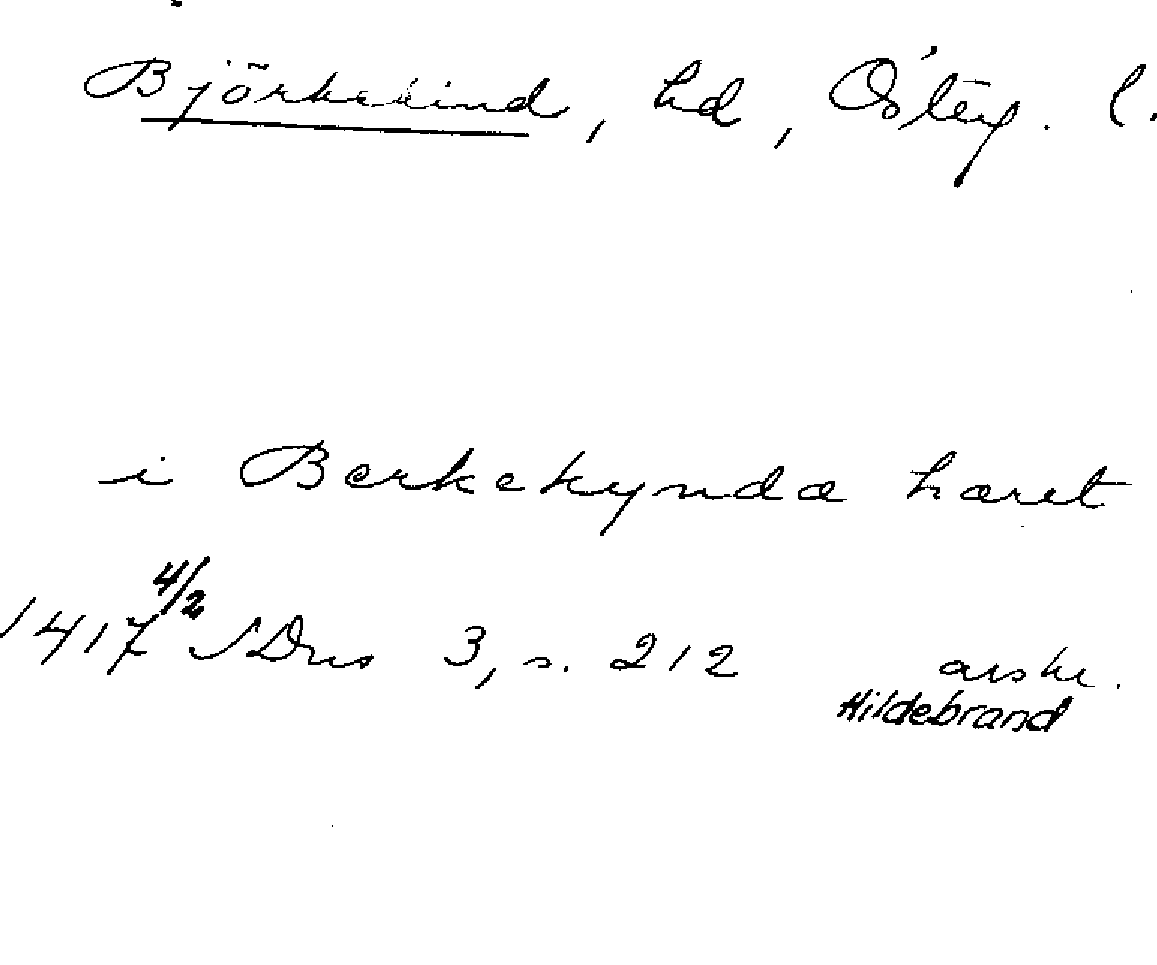 Björkekind, hd, Österg. l.
i Berkekynda hæret
1417 4/2 SDns 3, s. 212 avskr.
Hildebrand